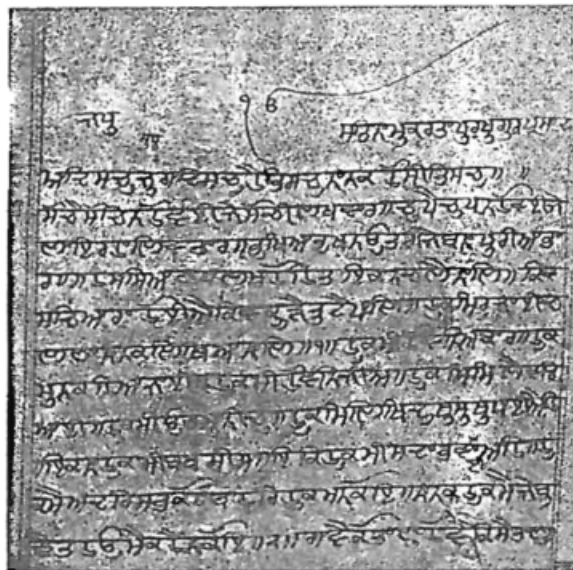 ੴ
ਜਪੁ ਸਤਿਨਾਮੁਕਰਤਾਪੁਰਖੁਗੁਰਪ੍ਰਸਾਦ
ਆਦਿਸਚੁਜੁਗਾਦਿਸਚੁਹੈਭੀਸਚੁਨਾਨਕਹੋਸੀਭੀਸਚੁ॥
ਸੋਚੈਸੋਚਿਨਹੋਵਈਜੇਸੋਚੀਲਖਵਾਰ॥ਚੁਪੈਚੁਪਨਹੋਵਈਜੇ
ਲਾਇਰਹਾਲਿਵਤਾਰ॥ਭੁਖਿਆਭੁਖਨਉਤਰੀਜੇਬੰਨਾਪੁਰੀਆਭਾ
ਰ॥ਸਹਸਸਿਆਣਪਾਲਖਹੋਹਿਤਇਕਨਚਲੈਨਾਲਿ॥ਕਿਵ
ਸਚਿਆਰਾਹੋਈਐਕਿਵਕੂੜੈਤੁਟੈਪਾਲਿ॥ਹੁਕਮਿਰਜਾਈਚਲ
ਣਾਨਾਨਕਲਿਖਿਆਨਾਲਿ॥੧॥ਹੁਕਮੀਹੋਵਨਿਆਕਾਰ॥ਹੁਕ
ਮੁਨਕਹਿਆਜਾਈ॥ਹੁਕਮੀਹੋਵਨਿਜੀਅ॥ਹੁਕਮਿਮਿਲੈਵਡਿ
ਆਈ॥ਹੁਕਮੀਉਤਮੁਨੀਚੁ॥ਹੁਕਮਿਲਿਖਿਦੁਖੁਸੁਖੁਪਾਈਅਹਿ
ਇਕਨਾਹੁਕਮੀਬਖਸੀਸ॥ਇਕਿਹੁਕਮੀਸਦਾਭਵਾਈਅਹਿ॥ਹੁ
ਕਮੈਅੰਦਰਿਸਭੁਕੋਬਾਹਰਿਹੁਕਮਨਕੋਇ॥ਨਾਨਕਹੁਕਮੈਜੇਬੁ
ਝੈਤਹਉਮੈਕਹੈਨਕੋਇ॥੨॥ਗਾਵੈਕੋਤਾਣੁਹੋਵੈਕਿਸੈਤਾਣੁ